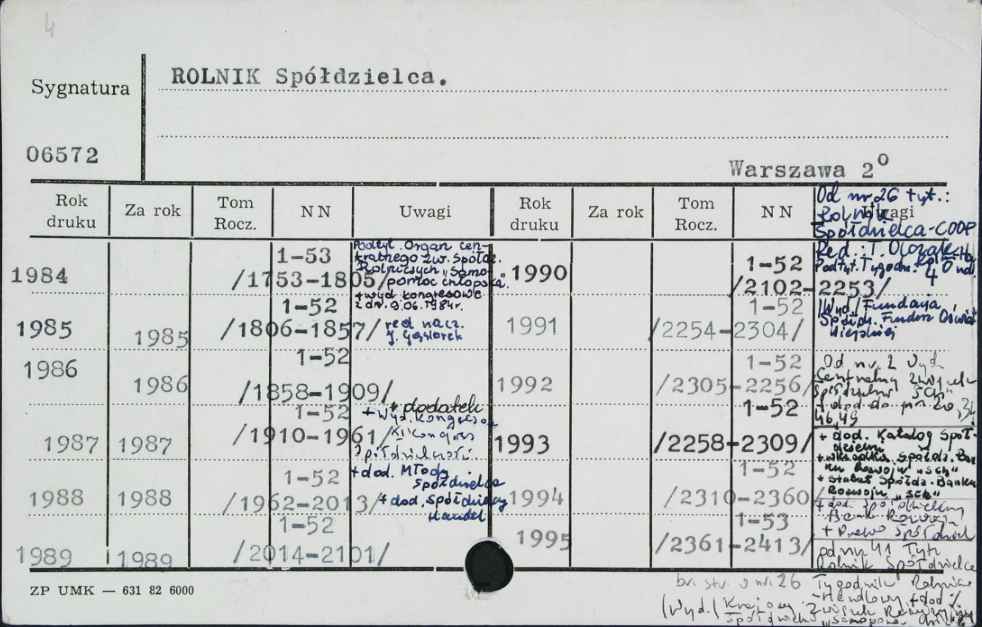 4
ROLNIK Spółdzielca.
Sygnatura
06572
Warszawa 2°
Rok druku
Za rok
Tom Rocz.
NN
Uwagi
Rok druku
Za rok
Tom Rocz.
NN
Uwagi
1984
1-53
/1753-1805/
Podtyt. Organ cen-
tralnego Zw. Spółdz.
Rolniczych "Samo-
pomoc chłopska.
+ wyd kongresowe
z dn. 9.06.1984r.
1985
1985
1-52
/1806-1857/
red nacz.
J. Gąsiorek
1986
1986
1-52
/1858-1909/
+ dodatek
1987
1987
1-52
/1910-1961/
+ Wyd. Kongresowe
XI Kongres
Spółdzielczości
1988
1988
1-52
/1962-2013/
+ dod. Młody
Spółdzielca
+ dod. Spółdzielczy
Handel
1989
1989
1-52
/2014-2101/
Od nr 26 tyt.:
Rolnik
Spółdzielca-COOP
Red.: T.
Podtyt. Tygodn.
1990
1-52
/2102-2253/
1991
1-52
/2254-2304/
/Wyd./ Fundacja
Spółdz. Fundusz Oświaty
Wiejskiej
1992
1-52
/2305-2256/
Od nr 2 Wyd
Centralny Związek
Spółdzielni "SCh"
+ dod. do nr 20, 32
46, 49
1993
1-52
/2258-2309/
+ dod. Katalog Spół-
dzielni
+ wkładka Spółdz. Ban-
ku Rozwoju "SCh"
+ statut Spółdz. Banku
Rozwoju "SCh"
1994
1-52
/2310-2360/
+ dod. Spółdzielczy
Bank Rozwoju
+ Prawo Spółdziel
1995
1-53
/2361-2413/
od nr 41 Tyt:
Rolnik Spółdzielca
Tygodnik Rolniczo
-Handlowy + dod.
br. str. 9 nr. 26
(Wyd.) Krajowy Związek Rewizyjny
Spółdzielni "Samopomoc Chłopska"
ZP UMK — 631 82 6000